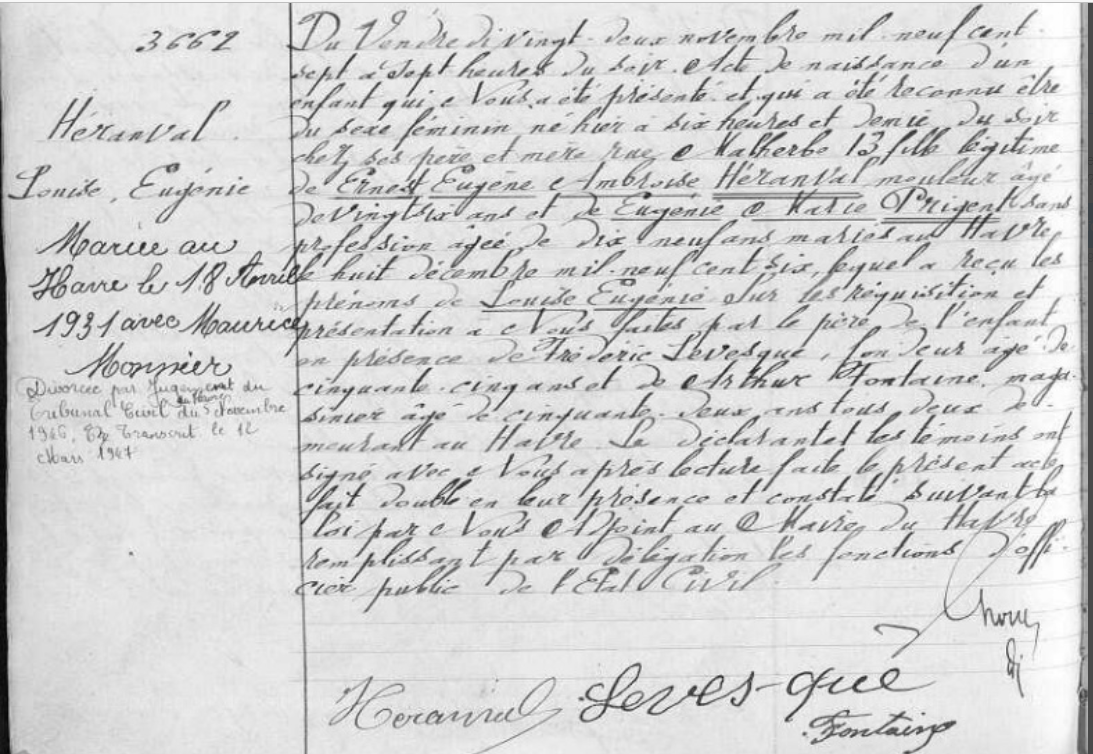 3662
Héranval
Louise, Eugénie
Mariée au
Havre le 18 Avril
1931 avec Maurice
Monnier
Divorcée par Jugement du
Tribunal Civil du Havre 5 Novembre
1946, Transcrit le 12
Mars 1947
Du Vendredi vingt-deux novembre mil-neuf cent-
sept à sept heures du soir. Acte de naissance d'un
enfant qui, à Nous, a été présenté et qui a été reconnu être
du sexe féminin né hier à six heures et demie du soir
chez ses père et mère rue Malherbe 13 fille légitime
de Ernest Eugène Ambroise Héranval mouleur âgé
de vingt six ans et de Eugénie Marie Prigent sans
profession âgée de dix neuf ans mariés au Havre
le huit décembre mil-neuf cent six, lequel a reçu les
prénoms de Louise Eugénie Sur les réquisition et
présentation à Nous faites par le père de l'enfant
en présence de Frédéric Levesque, fondeur âgé de
cinquante-cinq ans et de Arthur Fontaine, maga-
sinier âgé de cinquante-deux ans tous deux de-
meurant au Havre. Le déclarant et les témoins ont
signé avec Nous après lecture faite le présent acte
fait double en leur présence et constaté suivant la
loi par Nous Adjoint au Maire du Havre
remplissant par délégation les fonctions d'offi-
cier public de l'Etat Civil.
Heranval Levesque
Fontaine